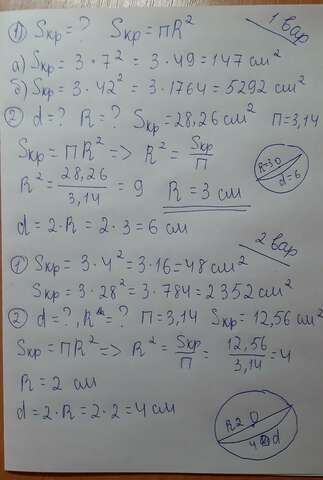 ① Sкр = ? Sкр = πR² 1 вар
а) Sкр = 3 · 7² = 3 · 49 = 147 см²
б) Sкр = 3 · 42² = 3 · 1764 = 5292 см²
② d = ? R = ? Sкр = 28,26 см² П = 3,14
Sкр = ПR² => R² = Sкр/П
R² = 28,26/3,14 = 9 R = 3 см
R=3 d=6
d = 2 · R = 2 · 3 = 6 см
2 вар
① Sкр = 3 · 4² = 3 · 16 = 48 см²
Sкр = 3 · 28² = 3 · 784 = 2352 см²
② d = ?, R = ? П = 3,14 Sкр = 12,56 см²
Sкр = ПR² => R² = Sкр/П = 12,56/3,14 = 4
R = 2 см
d = 2 · R = 2 · 2 = 4 см
R2
4 d